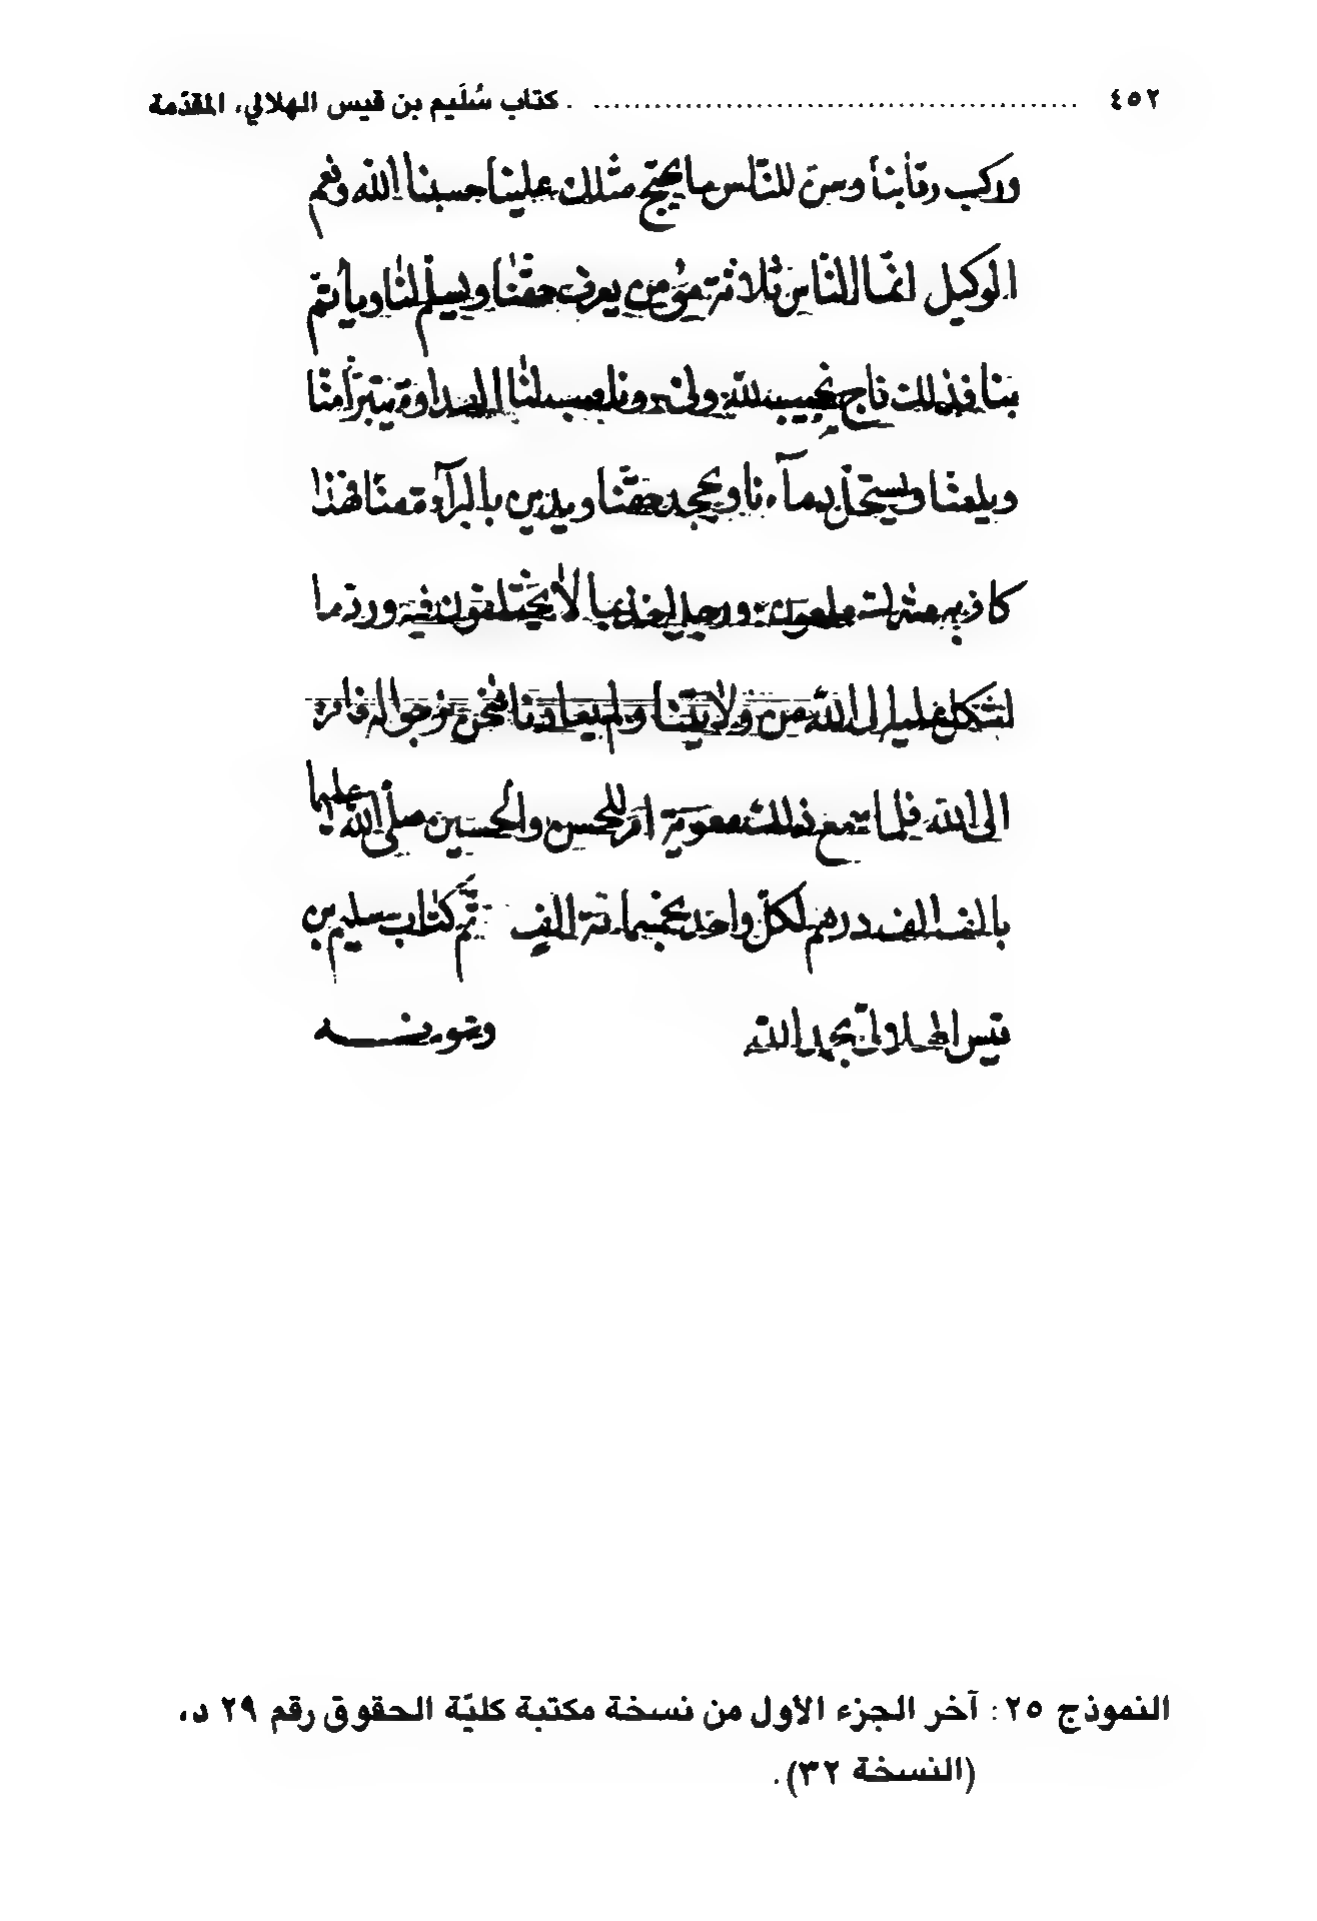 ٤٥٢ ............................................... كتاب سُلَيم بن قيس الهلالي، المقدّمة
وركب رقابنا وسن للنّاس ما يحتجّ مثلك علينا حسبنا الله ونعم
الوكيل انمّا النّاس ثلاثة مؤمن يعرف حقنا ويسلّم لنا وياتمّ
بنا فذلك ناج نجيب لله ولىّ وناصب لنا العداوة يتبرّأ منّا
ويلعنا ويستحلّ دمآءنا ويجحد حقنا ويدين بالبرآءة منّا فهذا
كافر به مشرك ملعون ورجل اخذ بما لا يختلفون فيه وردّ ما
اشكل عليه الى الله من ولايتنا ولم يعادنا فنحن نرجوا له فامره
الى الله فلما سمع ذلك معوية امر للحسن والحسين صلى الله عليهما
بالف الف درهم لكلّ واحد بخمسمائة الف تمّ كتاب سليم بن
قيس الهلالىّ بحمد الله وعونه
النموذج ٢٥: آخر الجزء الأول من نسخة مكتبة كليّة الحقوق رقم ٢٩ د،
(النسخة ٣٢).